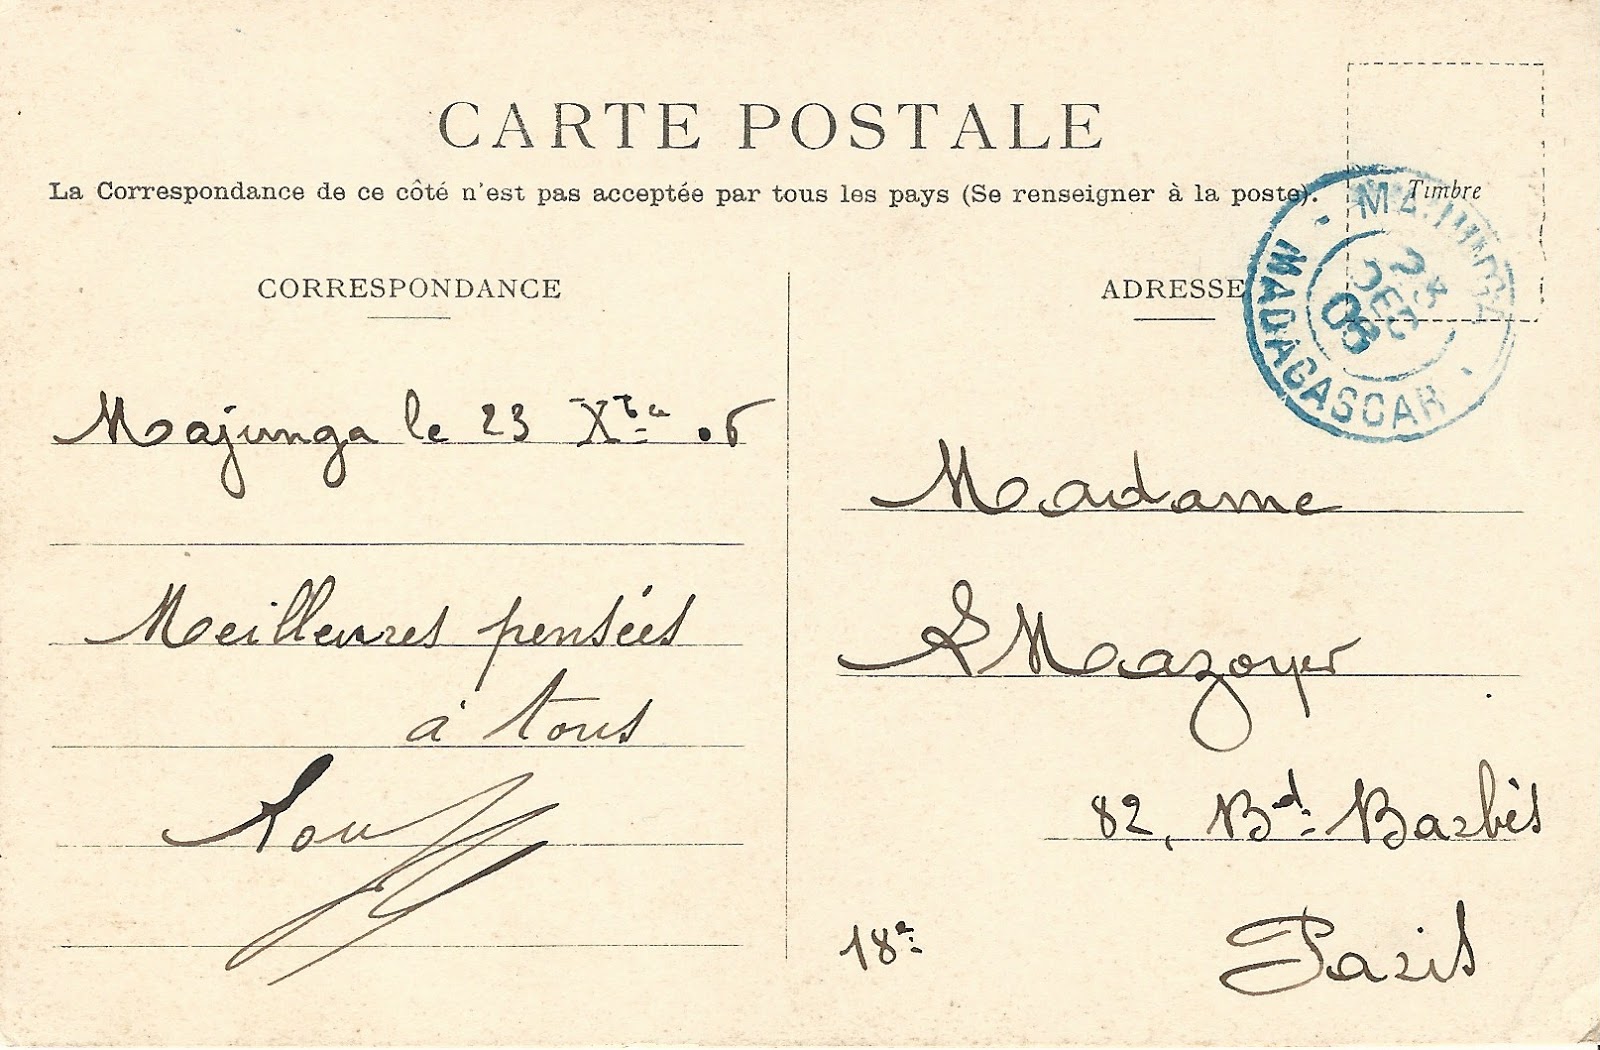 CARTE POSTALE
La Correspondance de ce côté n'est pas acceptée par tous les pays (Se renseigner à la poste).
Timbre
MAJUNGA
23
DEC
MADAGASCAR
CORRESPONDANCE
Majunga le 23 Xbre
Meilleures pensées
à tous
ADRESSE
Madame
Mazoyer
82, Bd. Barbès
18e
Paris